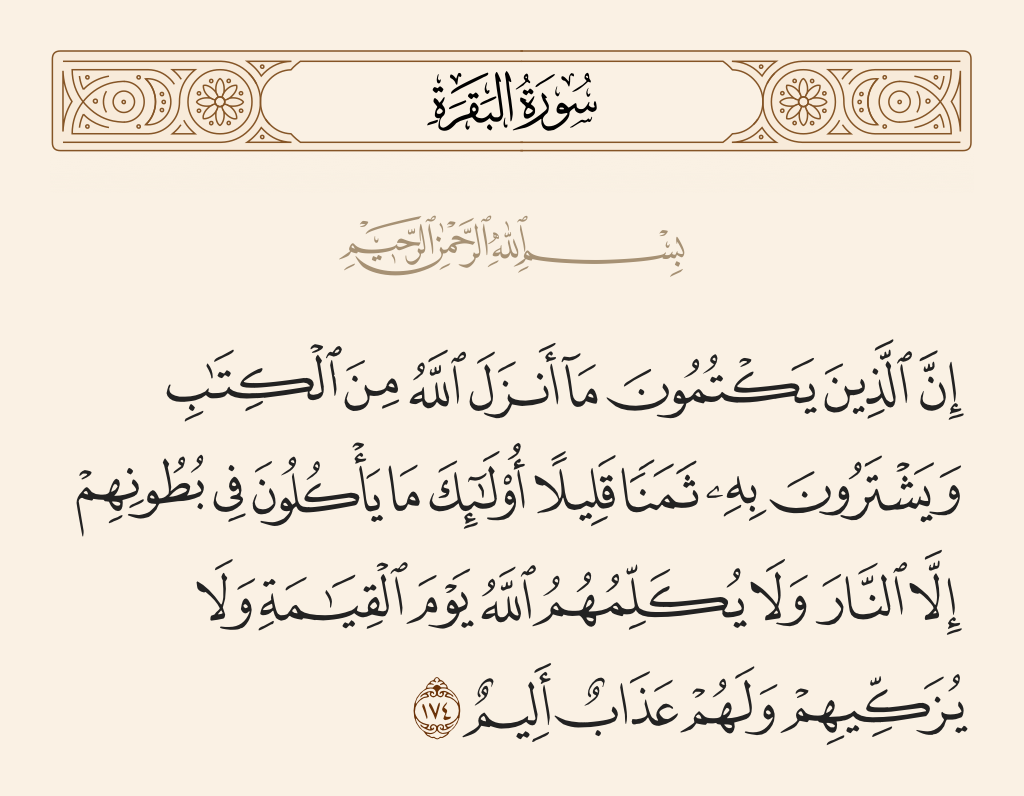 سُورَةُ البَقَرَةِ
بِسْمِ ٱللَّهِ ٱلرَّحْمَٰنِ ٱلرَّحِيمِ
إِنَّ ٱلَّذِينَ يَكْتُمُونَ مَآ أَنزَلَ ٱللَّهُ مِنَ ٱلْكِتَٰبِ
وَيَشْتَرُونَ بِهِۦ ثَمَنًا قَلِيلًا أُو۟لَٰٓئِكَ مَا يَأْكُلُونَ فِى بُطُونِهِمْ
إِلَّا ٱلنَّارَ وَلَا يُكَلِّمُهُمُ ٱللَّهُ يَوْمَ ٱلْقِيَٰمَةِ وَلَا
يُزَكِّيهِمْ وَلَهُمْ عَذَابٌ أَلِيمٌ ١٧٤